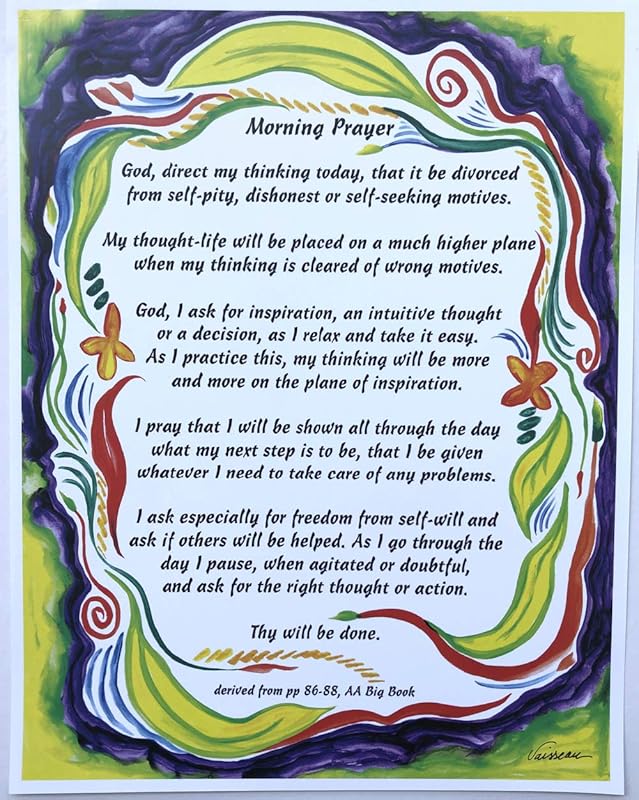 Morning Prayer
God, direct my thinking today, that it be divorced
from self-pity, dishonest or self-seeking motives.
My thought-life will be placed on a much higher plane
when my thinking is cleared of wrong motives.
God, I ask for inspiration, an intuitive thought
or a decision, as I relax and take it easy.
As I practice this, my thinking will be more
and more on the plane of inspiration.
I pray that I will be shown all through the day
what my next step is to be, that I be given
whatever I need to take care of any problems.
I ask especially for freedom from self-will and
ask if others will be helped. As I go through the
day I pause, when agitated or doubtful,
and ask for the right thought or action.
Thy will be done.
derived from pp 86-88, AA Big Book
Vaisseau